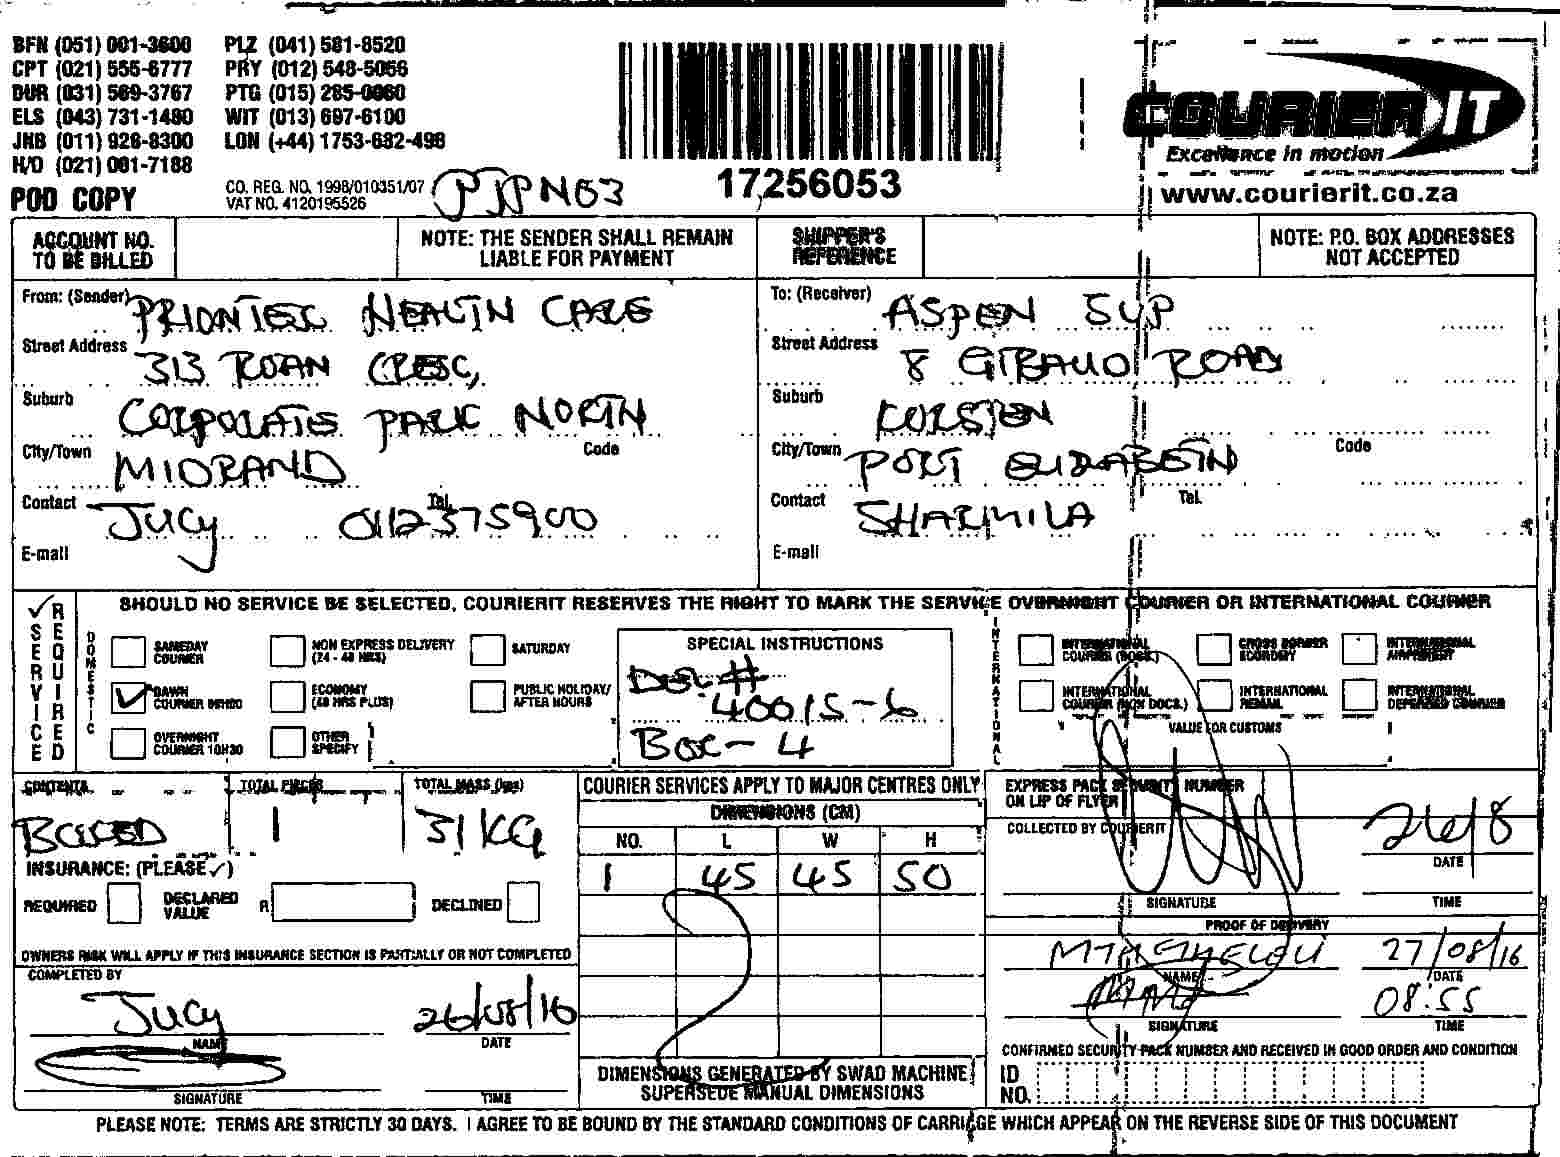 BFN (051) 001-3600 PLZ (041) 581-8520
CPT (021) 555-6777 PRY (012) 548-5066
DUR (031) 569-3767 PTG (015) 285-0660
ELS (043) 731-1480 WIT (013) 697-6100
JNB (011) 928-8300 LON (+44) 1753-682-498
H/O (021) 001-7188
POD COPY
CO. REG. NO. 1998/010351/07
VAT NO. 4120195526
17256053
COURIER IT
Excellence in motion
www.courierit.co.za
ACCOUNT NO. TO BE BILLED
NOTE: THE SENDER SHALL REMAIN LIABLE FOR PAYMENT
SHIPPER'S REFERENCE
NOTE: P.O. BOX ADDRESSES NOT ACCEPTED
From: (Sender) HEALTH CARE
Street Address 313 ROAN CRESC,
Suburb CORPORATE PARK NORTH
City/Town MIDRAND Code
Contact Jucy Tel. 0112375900
E-mail
To: (Receiver) ASPEN SVP
Street Address 8 GIBAUD ROAD
Suburb KORSTEN
City/Town PORT ELIZABETH Code
Contact SHARMILA Tel.
E-mail
SERVICE REQUIRED
SHOULD NO SERVICE BE SELECTED, COURIERIT RESERVES THE RIGHT TO MARK THE SERVICE OVERNIGHT COURIER OR INTERNATIONAL COURIER
DOMESTIC
SAMEDAY COURIER
NON EXPRESS DELIVERY (24 - 48 HRS)
SATURDAY
DAWN COURIER 09H00
ECONOMY (48 HRS PLUS)
PUBLIC HOLIDAY/ AFTER HOURS
OVERNIGHT COURIER 10H30
OTHER SPECIFY
SPECIAL INSTRUCTIONS
DEL #
40015-6
BOX - 4
INTERNATIONAL
INTERNATIONAL COURIER (DOCS.)
CROSS BORDER ECONOMY
INTERNATIONAL AIRFREIGHT
INTERNATIONAL COURIER (NON DOCS.)
INTERNATIONAL REMAIL
INTERNATIONAL DEFERRED COURIER
VALUE FOR CUSTOMS
CONTENTS
BOXED
TOTAL PIECES
1
TOTAL MASS (kgs)
31 KG
INSURANCE: (PLEASE ✓)
REQUIRED
DECLARED VALUE R
DECLINED
OWNERS RISK WILL APPLY IF THIS INSURANCE SECTION IS PARTIALLY OR NOT COMPLETED
COMPLETED BY
Jucy
NAME
26/08/16
DATE
SIGNATURE
TIME
COURIER SERVICES APPLY TO MAJOR CENTRES ONLY
DIMENSIONS (CM)
NO. L W H
1 45 45 50
DIMENSIONS GENERATED BY SWAD MACHINE SUPERSEDE MANUAL DIMENSIONS
EXPRESS PACK SECURITY NUMBER ON LIP OF FLYER
COLLECTED BY COURIERIT
26/8
DATE
SIGNATURE
TIME
PROOF OF DELIVERY
27/08/16
NAME
DATE
08:55
SIGNATURE
TIME
CONFIRMED SECURITY PACK NUMBER AND RECEIVED IN GOOD ORDER AND CONDITION
ID NO.
PLEASE NOTE: TERMS ARE STRICTLY 30 DAYS. I AGREE TO BE BOUND BY THE STANDARD CONDITIONS OF CARRIAGE WHICH APPEAR ON THE REVERSE SIDE OF THIS DOCUMENT